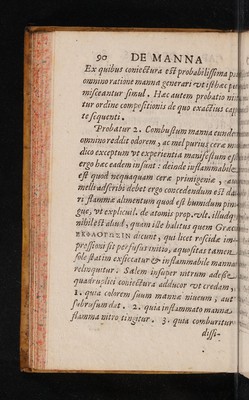 90 DE MANNA
Ex quibus coniectura est probabilissima
omnino ratione manna generari vt isthæc
misceantur simul. Hæc autem probatio
tur ordine compositionis de quo exactius
te sequenti.
Probatur 2. Combustum manna eundem
omnino reddit odorem, ac mel purius ceræ
dico exceptum vt experientia manifestum
ergo hæc eadem insunt: deinde inflammabile
est quod nequaquam ceræ primigeniæ,
melli adscribi debet ergo concedendum est
ri flammæ alimentum quod est humidum pin-
gue, vt explicui l. de atomis prop. vlt. illud
nihil est aliud, quam ille halitus quem Græci
dicunt, qui licet roscidæ im-
pressioni sit perfusus initio, aquositas tamen
sole statim exsiccatur & inflammabile manna
relinquitur. Salem insuper nitrum adesse
quadruplici coniectura adducor vt credam,
1. quia colorem suum manna niueum, aut
subrufum dat. 2. quia inflammato manna
flamma nitro tingitur. 3. quia comburitur
dissi-